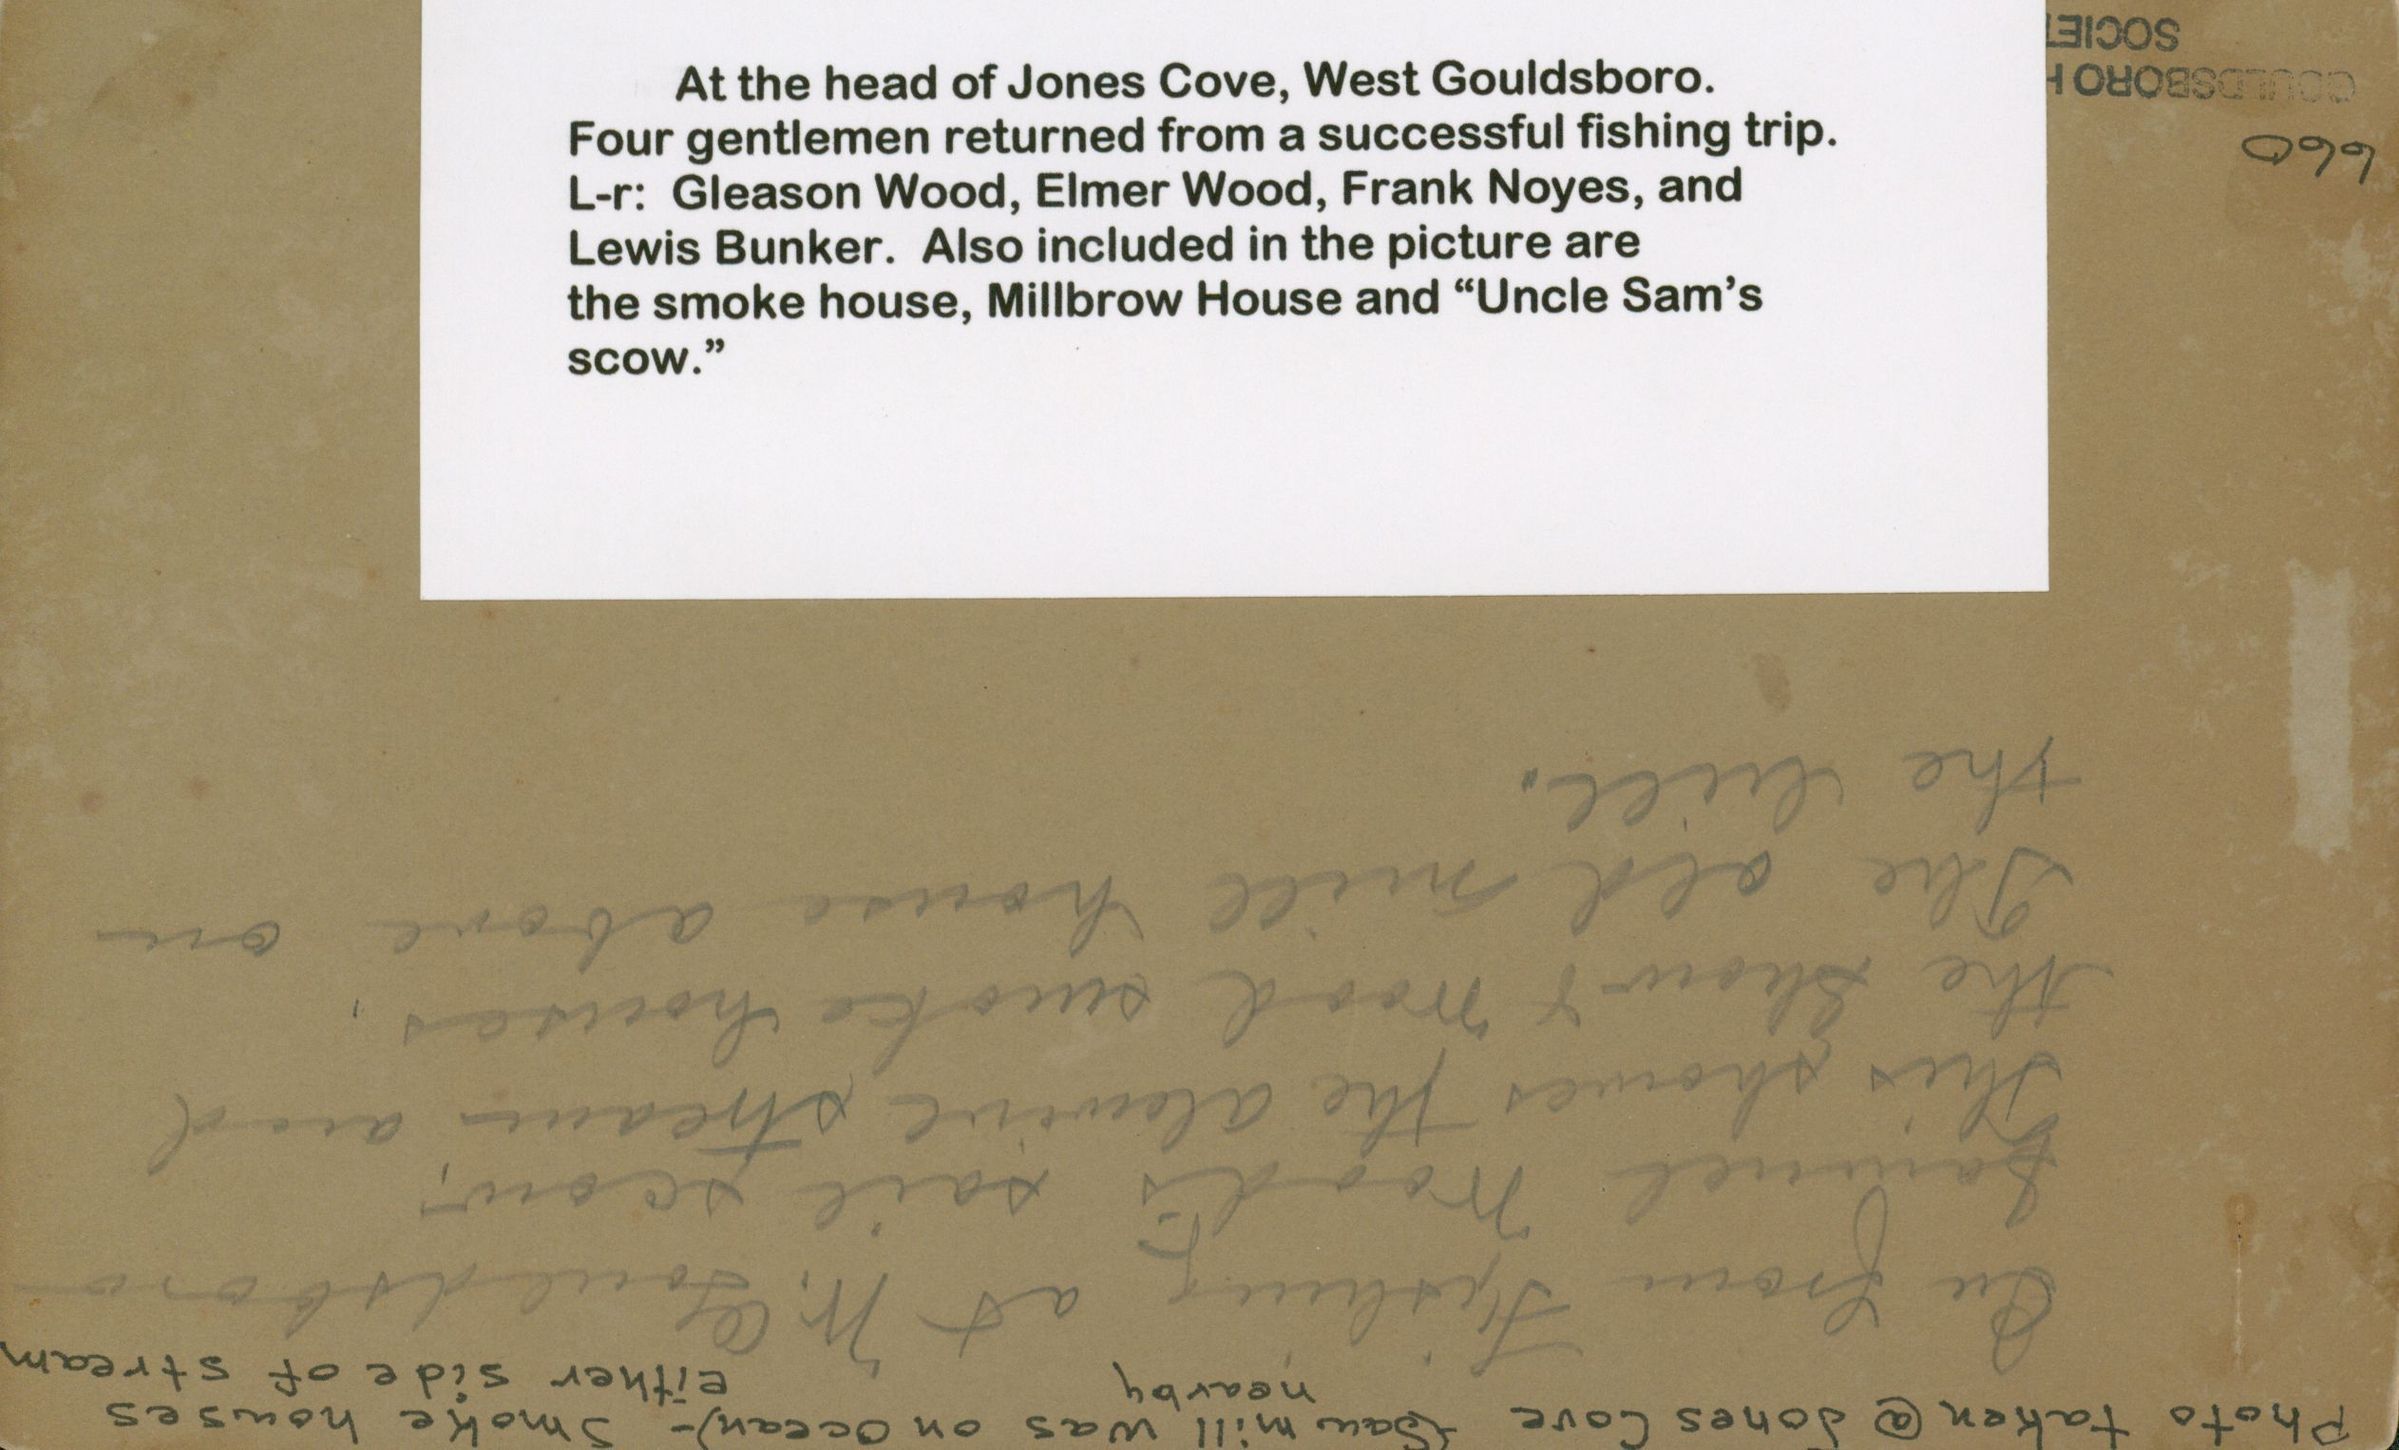 At the head of Jones Cove, West Gouldsboro.
Four gentlemen returned from a successful fishing trip.
L-r: Gleason Wood, Elmer Wood, Frank Noyes, and
Lewis Bunker. Also included in the picture are
the smoke house, Millbrow House and “Uncle Sam’s
scow.”
Photo taken @ Jones Cove (Saw mill was on ocean) - Smoke houses
nearby either side of stream
In from Fishing at W. Gouldsboro
Samuel Wood's sail scow,
This shows the alewive stream and
the Shaw & Wood smoke houses,
The old mill house above on
the hill.
660
GOULDSBORO H
SOCIET